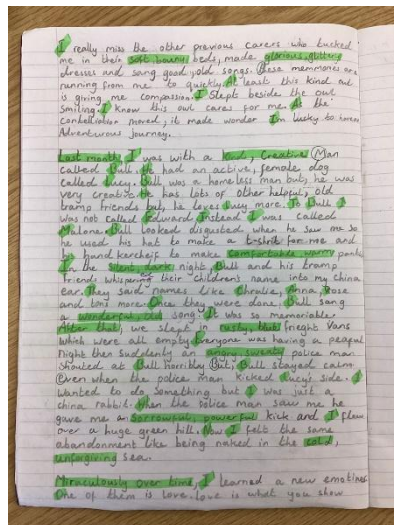 I really miss the other previous carers who tucked
me in their soft, bouncy beds, made glorious, glittery
dresses and sang good, old songs. These memmories are
running from me to quickly. At least this kind owl
is giving me compassion. I slept beside the owl
smiling. I know this owl cares for me. As the
constellation moved, it made wonder Im lucky to have
Adventurous journey.

Last month, I was with a kind, Creative Man
called Bull. He had an active, female dog
called Lucy. Bull was a homeless man but, he was
very creative. He has lots of other helpful, old
tramp friends but, he loves Lucy more. To Bull I
was not called Edward Instead I was called
Malone. Bull looked disgusted when he saw me so
he used his hat to make a t-shirt for me and
his hand kercheif to make comfortable warm pants
In the silent, dark night, Bull and his tramp
friends whispering their children's name into my china
ear. They said names like Christine, Anna, Rose
and tons more. Once they were done. Bull sang
a wonderful, old song. It was so memoriable.
After that, we slept in rusty, frieght Vans
which were all empty. Everyone was having a peaceful
night then suddenly an angry, sweaty police man
shouted at Bull horribly But, Bull stayed calm
Even when the police man kicked Lucy's side. I
wanted to do something but I was just a
china rabbit. When the police man saw me he
gave me a sorrowful, powerful kick and I flew
over a huge green hill. Now I felt the same
abandonment like being naked in the cold,
unforgiving sea.

Miraculously over time, I learned a new emotines
One of them is love. Love is what you show